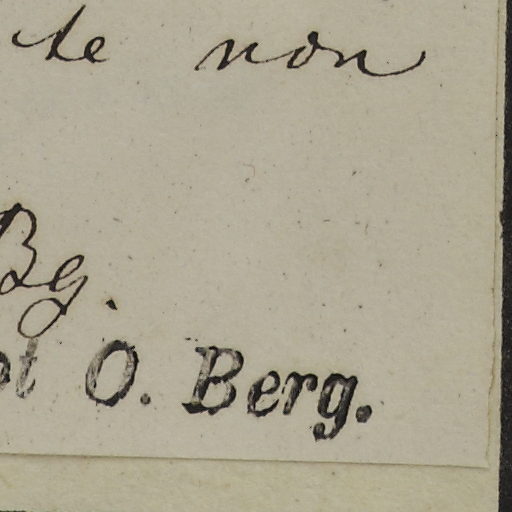 te non
Bg.
ot O. Berg.